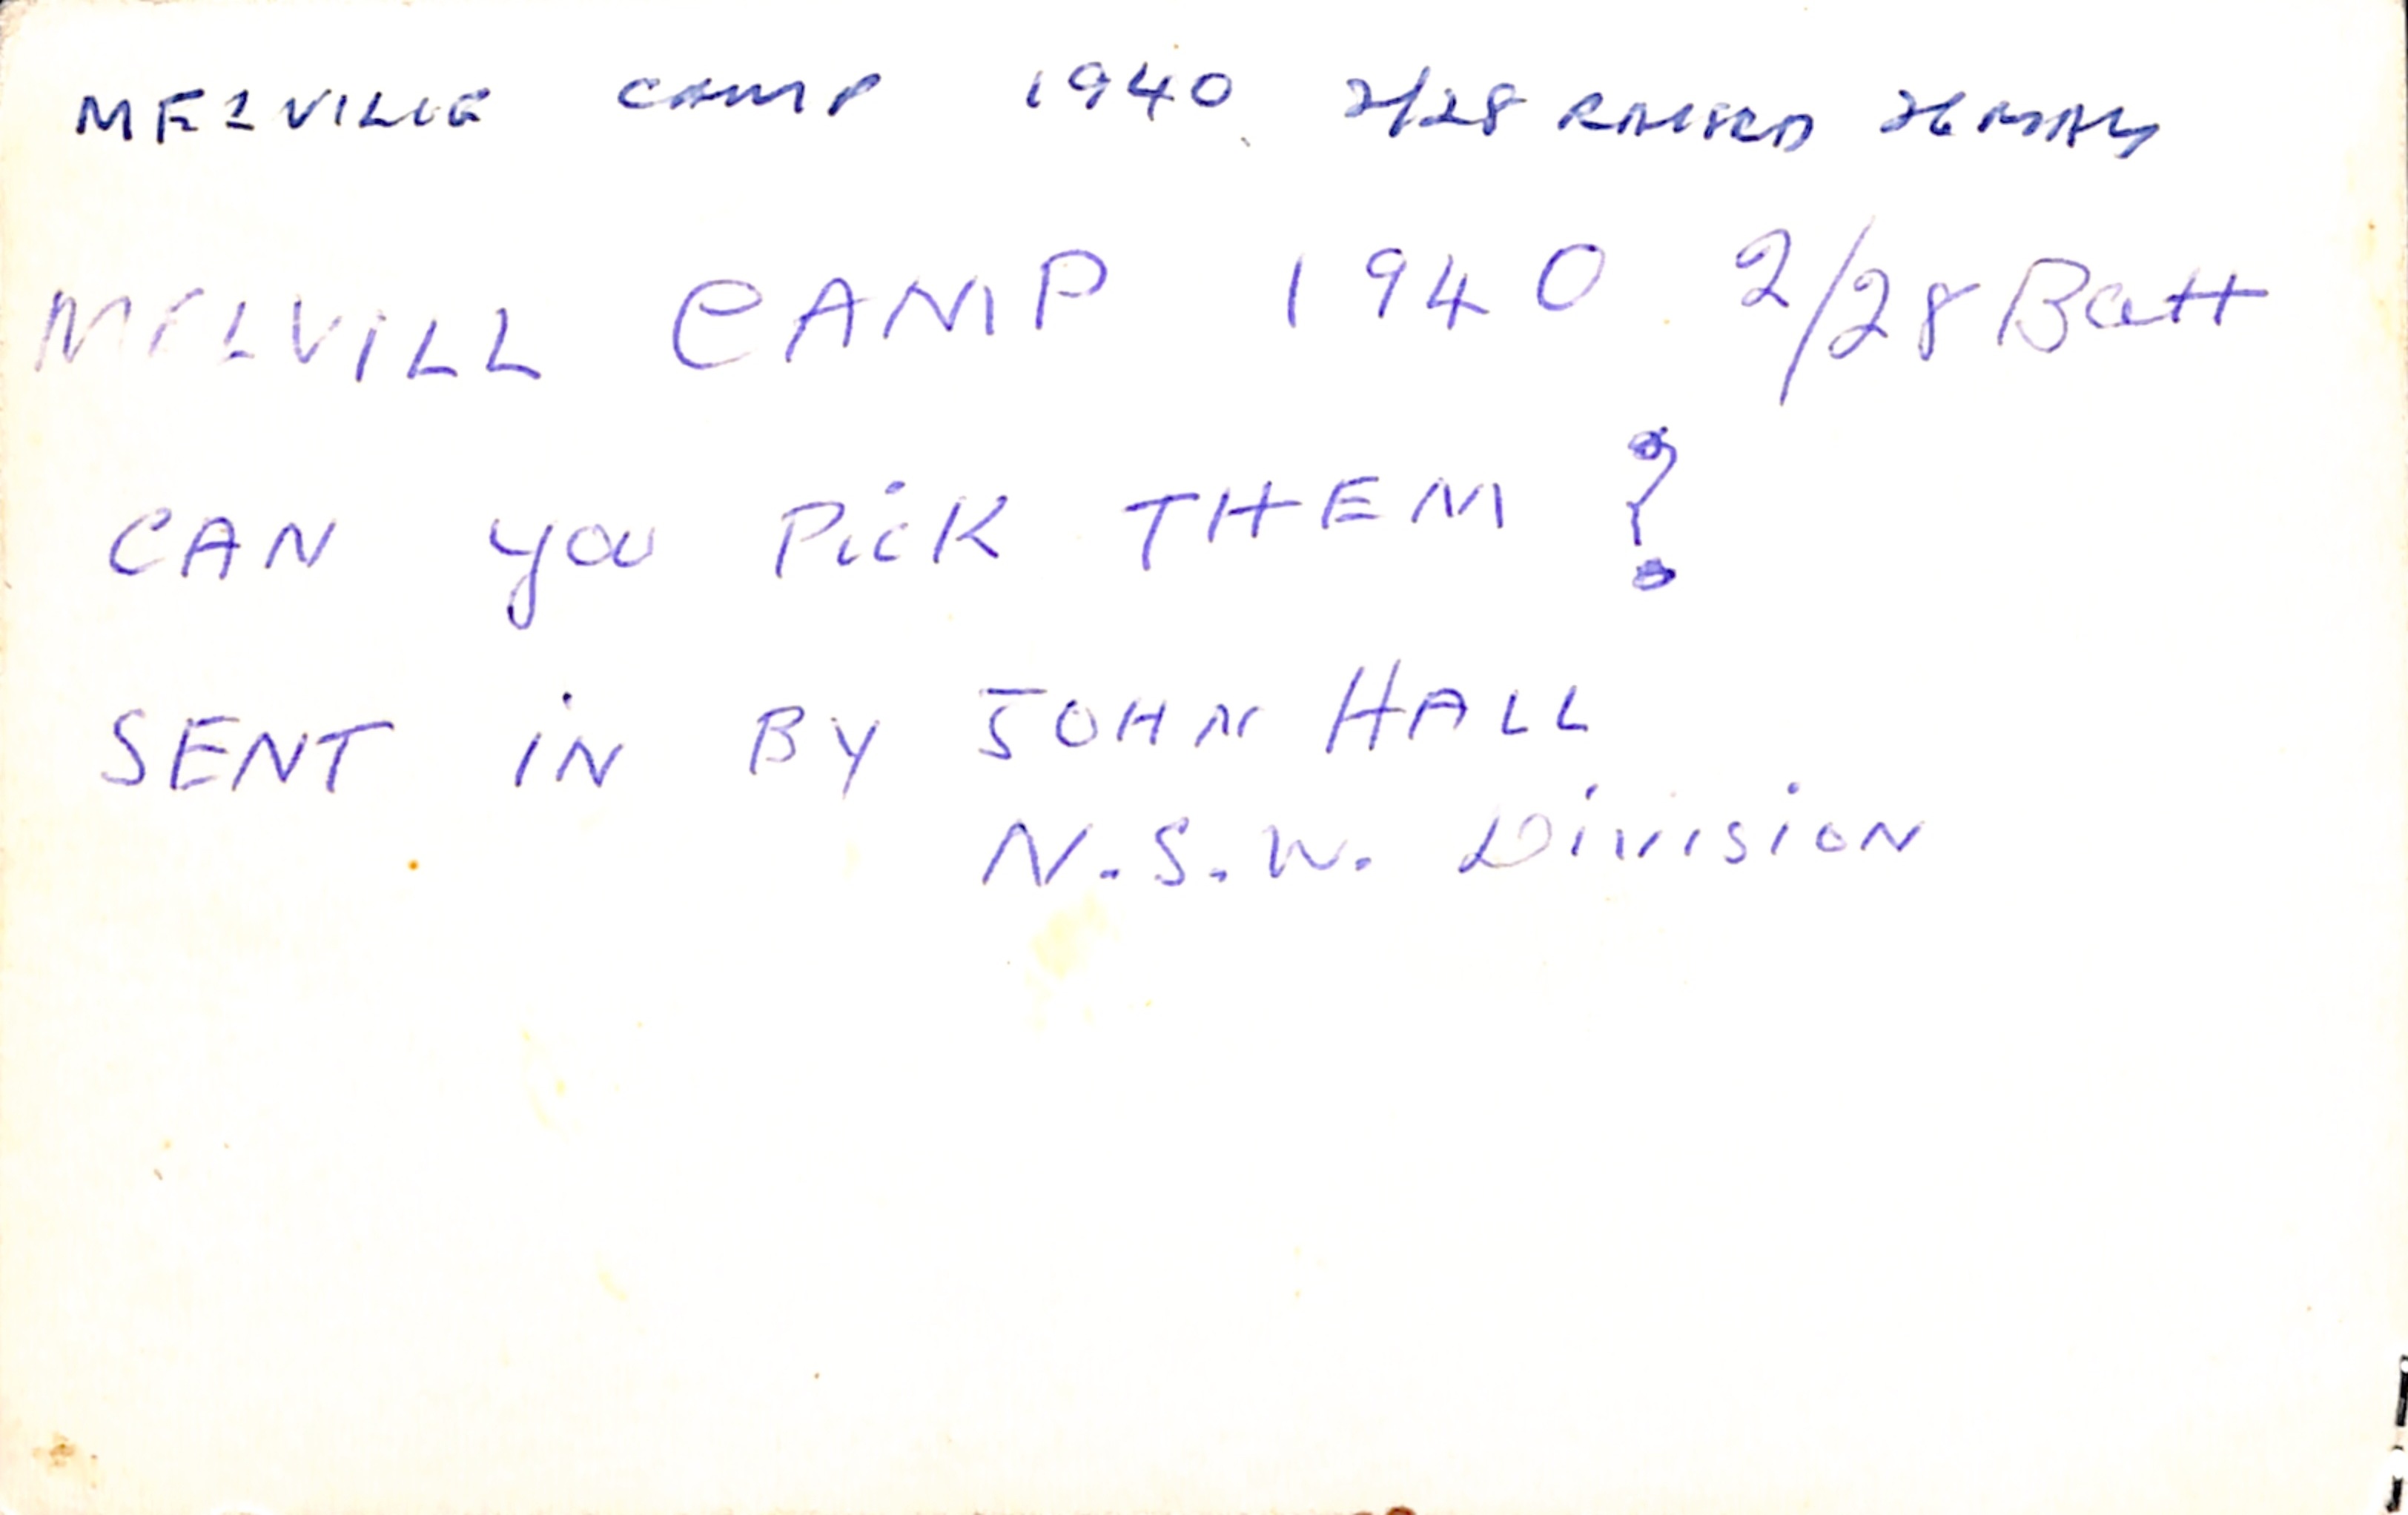 MELVILLE CAMP 1940 2/28 RAISED 26 MAY
MELVILL CAMP 1940 2/28 Batt
CAN you PicK THEM ?
SENT iN BY JOHN HALL
N.S.W. DiViSiON